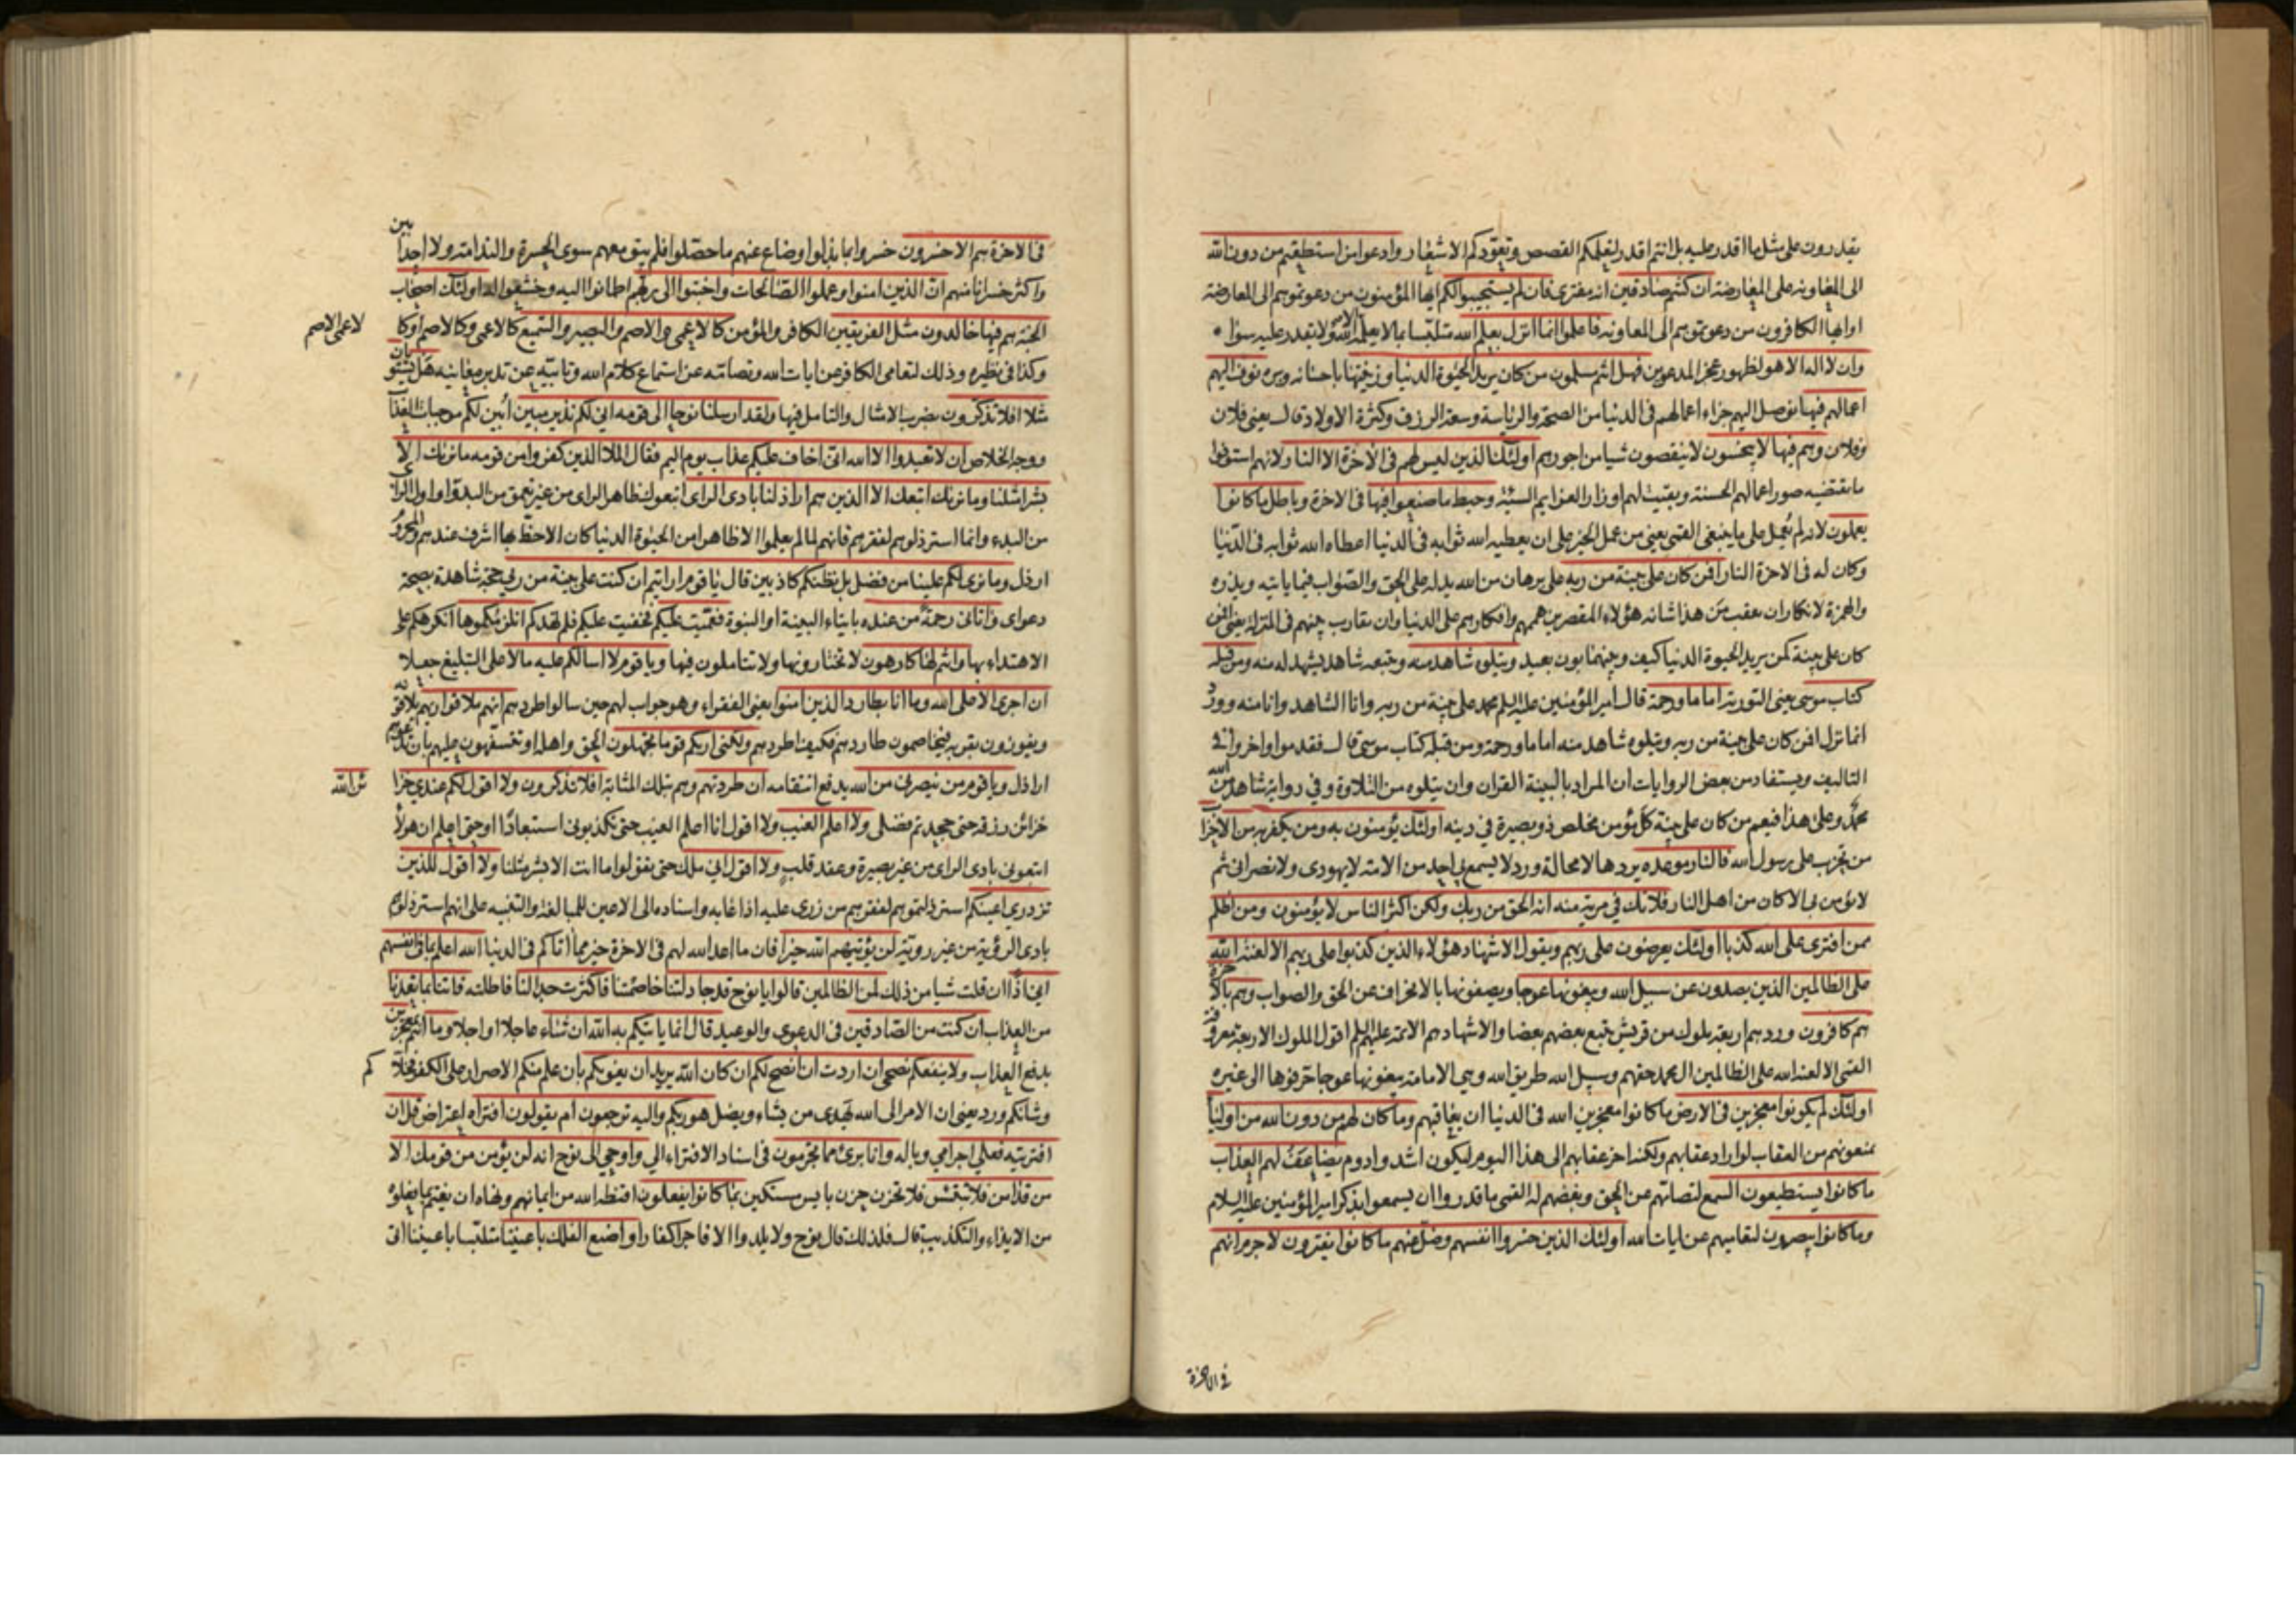 يقدرون على مثل ما اقدر عليه بل انتم اقدر لتعلمكم القصص وتعودكم الاشعار وادعوا من استطعتم من دون الله
الى المعاونة على المعارضة ان كنتم صادقين انه مفترى فان لم يستجيبوا لكم ايها المؤمنون من دعوتموهم الى المعارضة
او ايها الكافرون من دعوتموهم الى المعاونة فاعلموا انما انزل بعلم الله متلبسا بما لا يعلمه الا الله ولا يقدر عليه سواه
وان لا اله الا هو لظهور عجز المدعوين فهل انتم مسلمون من كان يريد الحيوة الدنيا وزينتها باحسانه وبره نوف اليهم
اعمالهم فيها نوصل اليهم جزاء اعمالهم في الدنيا من الصحة والرياسة وسعة الرزق وكثرة الاولاد قال يعني فلان
وفلان وهم فيها لا يبخسون لا ينقصون شيا من اجورهم اولئك الذين ليس لهم في الاخرة الا النار لانهم استوفوا
ما يقتضيه صور اعمالهم الحسنة وبقيت لهم اوزار العزايم السيئة وحبط ما صنعوا فيها في الاخرة وباطل ما كانوا
يعملون لانه لم يعمل على ما ينبغي القمي يعني من عمل الخير على ان يعطيه الله ثوابه في الدنيا اعطاه الله ثوابه في الدنيا
وكان له في الاخرة النار افمن كان على بينة من ربه على برهان من الله يدله على الحق والصواب فيما ياتيه ويذره
والهمزة لانكار ان يعقب من هذا شانه هؤلاء المقصرين هممهم وافكارهم على الدنيا وان يقارب بينهم في المنزلة يعني افمن
كان على بينة كمن يريد الحيوة الدنيا كيف وبينهما بون بعيد ويتلوه شاهد منه ويتبعه شاهد يشهد له منه ومن قبله
كتاب موسى يعني التورية اماما ورحمة قال امير المؤمنين عليه السلم محمد على بينة من ربه وانا الشاهد وانا منه وورد
انما نزل افمن كان على بينة من ربه ويتلوه شاهد منه اماما ورحمة ومن قبله كتاب موسى قال فقدموا واخروا في
التاليف ويستفاد من بعض الروايات ان المراد بالبينة القران وان يتلوه من التلاوة وفي رواية شاهد من الله
محمد وعلى هذا فيعم من كان على بينة كل مؤمن مخلص ذو بصيرة في دينه اولئك يؤمنون به ومن يكفر به من الاحزاب
من تحزب على رسول الله فالنار موعده يردها لا محالة ورد لا يسمع بي احد من الامة لا يهودي ولا نصراني ثم
لا يؤمن بي الا كان من اهل النار فلا تك في مرية منه انه الحق من ربك ولكن اكثر الناس لا يؤمنون ومن اظلم
ممن افترى على الله كذبا اولئك يعرضون على ربهم ويقول الاشهاد هؤلاء الذين كذبوا على ربهم الا لعنة الله
على الظالمين الذين يصدون عن سبيل الله ويبغونها عوجا ويصفونها بالانحراف عن الحق والصواب وهم بالاخرة
هم كافرون ورد هم اربعة ملوك من قريش يتبع بعضهم بعضا والاشهاد هم الائمة عليهم السلم اقول الملوك الاربعة معروفة
القمي الا لعنة الله على الظالمين ال محمد حقهم وسبيل الله طريق الله وهي الامامة يبغونها عوجا حرفوها الى غيره
اولئك لم يكونوا معجزين في الارض ما كانوا معجزين الله في الدنيا ان يعاقبهم وما كان لهم من دون الله من اولياء
يمنعونهم من العقاب لو اراد عقابهم ولكنه اخر عقابهم الى هذا اليوم ليكون اشد وادوم يضاعف لهم العذاب
ما كانوا يستطيعون السمع لتصامهم عن الحق وبغضهم له القمي ما قدروا ان يسمعوا بذكر امير المؤمنين عليه السلام
وما كانوا يبصرون لتعاميهم عن ايات الله اولئك الذين خسروا انفسهم وضل عنهم ما كانوا يفترون لا جرم انهم
في الاخرة
في الاخرة هم الاخسرون خسروا بما بذلوا وضاع عنهم ما حصلوا فلم يبق معهم سوى الحسرة والندامة ولا احد ابين
واكثر خسرانا منهم ان الذين امنوا وعملوا الصالحات واخبتوا الى ربهم اطمانوا اليه وخشعوا له اولئك اصحاب
الجنة هم فيها خالدون مثل الفريقين الكافر والمؤمن كالاعمى والاصم والبصير والسميع كالاعمى وكالاصم او كا
لاعمى الاصم
وكذا في نظيره وذلك لتعامي الكافر عن ايات الله وتصامه عن استماع كلام الله وتابيه عن تدبر معانيه هل يستويان
مثلا افلا تذكرون بضرب الامثال والتامل فيها ولقد ارسلنا نوحا الى قومه اني لكم نذير مبين ابين لكم موجبات العذاب
ووجه الخلاص ان لا تعبدوا الا الله اني اخاف عليكم عذاب يوم اليم فقال الملا الذين كفروا من قومه ما نريك الا
بشرا مثلنا وما نريك اتبعك الا الذين هم اراذلنا بادي الراي اتبعوك ظاهر الراي من غير تعمق من البدو او اول الراي
من البدء وانما استرذلوهم لفقرهم فانهم لما لم يعلموا الا ظاهرا من الحيوة الدنيا كان الاحظ بها اشرف عندهم والمحروم
ارذل وما نرى لكم علينا من فضل بل نظنكم كاذبين قال يا قوم ارايتم ان كنت على بينة من ربي حجة شاهدة بصحة
دعواي واتاني رحمة من عنده بايتاء البينة او النبوة فعميت عليكم فخفيت عليكم فلم تهدكم انلزمكموها انكرهكم على
الاهتداء بها وانتم لها كارهون لا تختارونها ولا تتاملون فيها ويا قوم لا اسالكم عليه مالا على التبليغ جعلا
ان اجري الا على الله وما انا بطارد الذين امنوا يعني الفقراء وهو جواب لهم حين سالوا طردهم انهم ملاقوا ربهم يلاقونه
ويفوزون بقربه فيخاصمون طاردهم فكيف اطردهم ولكني اريكم قوما تجهلون الحق واهله او تتسفهون عليهم بان تدعوهم
اراذل ويا قوم من ينصرني من الله يدفع انتقامه ان طردتهم وهم بتلك المثابة افلا تذكرون ولا اقول لكم عندي خزا
ئن الله
خزائن رزقه حتى جحدتم فضلي ولا اعلم الغيب ولا اقول انا اعلم الغيب حتى تكذبوني استبعادا او حتى اعلم ان هؤلاء
اتبعوني بادي الراي من غير بصيرة وعقد قلب ولا اقول اني ملك حتى تقولوا ما انت الا بشر مثلنا ولا اقول للذين
تزدري اعينكم استرذلتموهم لفقرهم من زرى عليه اذا عابه واسناده الى الاعين للمبالغة والتنبيه على انهم استرذلوهم
بادي الرؤية من غير روية لن يؤتيهم الله خيرا فان ما اعد الله لهم في الاخرة خير مما اتاكم في الدنيا الله اعلم بما في انفسهم
اني اذا ان قلت شيا من ذلك لمن الظالمين قالوا يا نوح قد جادلتنا خاصمتنا فاكثرت جدالنا فاطلته فاتنا بما تعدنا
من العذاب ان كنت من الصادقين في الدعوى والوعيد قال انما ياتيكم به الله ان شاء عاجلا او اجلا وما انتم بمعجزين
بدفع العذاب ولا ينفعكم نصحي ان اردت ان انصح لكم ان كان الله يريد ان يغويكم بان علم منكم الاصرار على الكفر فخلا
كم
وشانكم ورد يعني ان الامر الى الله يهدي من يشاء ويضل هو ربكم واليه ترجعون ام يقولون افتراه اعتراض قل ان
افتريته فعلي اجرامي وباله وانا بريء مما تجرمون في اسناد الافتراء الي واوحي الى نوح انه لن يؤمن من قومك الا
من قد امن فلا تبتئس فلا تحزن حزن بايس مستكين بما كانوا يفعلون اقنطه الله من ايمانهم ونهاه ان يغتم بما يفعلوه
من الايذاء والتكذيب قال فلذلك قال نوح ولا يلدوا الا فاجرا كفارا واصنع الفلك باعيننا متلبسا باعيننا اي